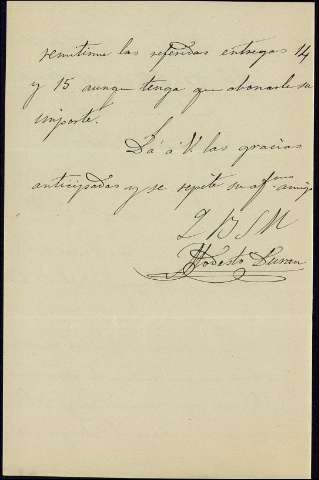 remitirme las referidas entregas 14
y 15 aunque tenga que abonarle su
importe.
Dá á V. las gracias
anticipadas y se repite su afmo amigo
Q B S M
Modesto Duran